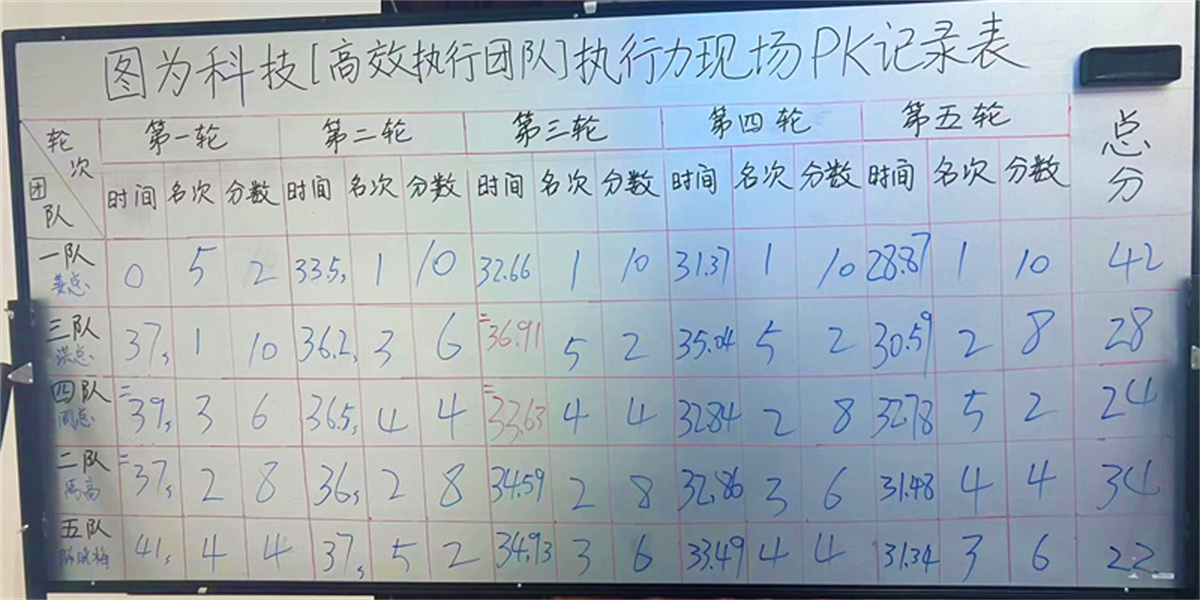 图为科技[高效执行团队]执行力现场PK记录表
轮次 第一轮 第二轮 第三轮 第四轮 第五轮 总分
团队 时间 名次 分数 时间 名次 分数 时间 名次 分数 时间 名次 分数 时间 名次 分数
一队 0 5 2 33.5s 1 10 32.66 1 10 31.37 1 10 28.87 1 10 42
姜总
三队 37s 1 10 36.2s 3 6 =36.91 5 2 35.04 5 2 30.59 2 8 28
洪总
四队 =39s 3 6 36.5s 4 4 =33.63 4 4 32.84 2 8 32.78 5 2 24
周总
二队 =37s 2 8 36s 2 8 34.59 2 8 32.86 3 6 31.48 4 4 34
马高
五队 41s 4 4 37s 5 2 34.93 3 6 33.49 4 4 31.34 3 6 22
陈晓梅